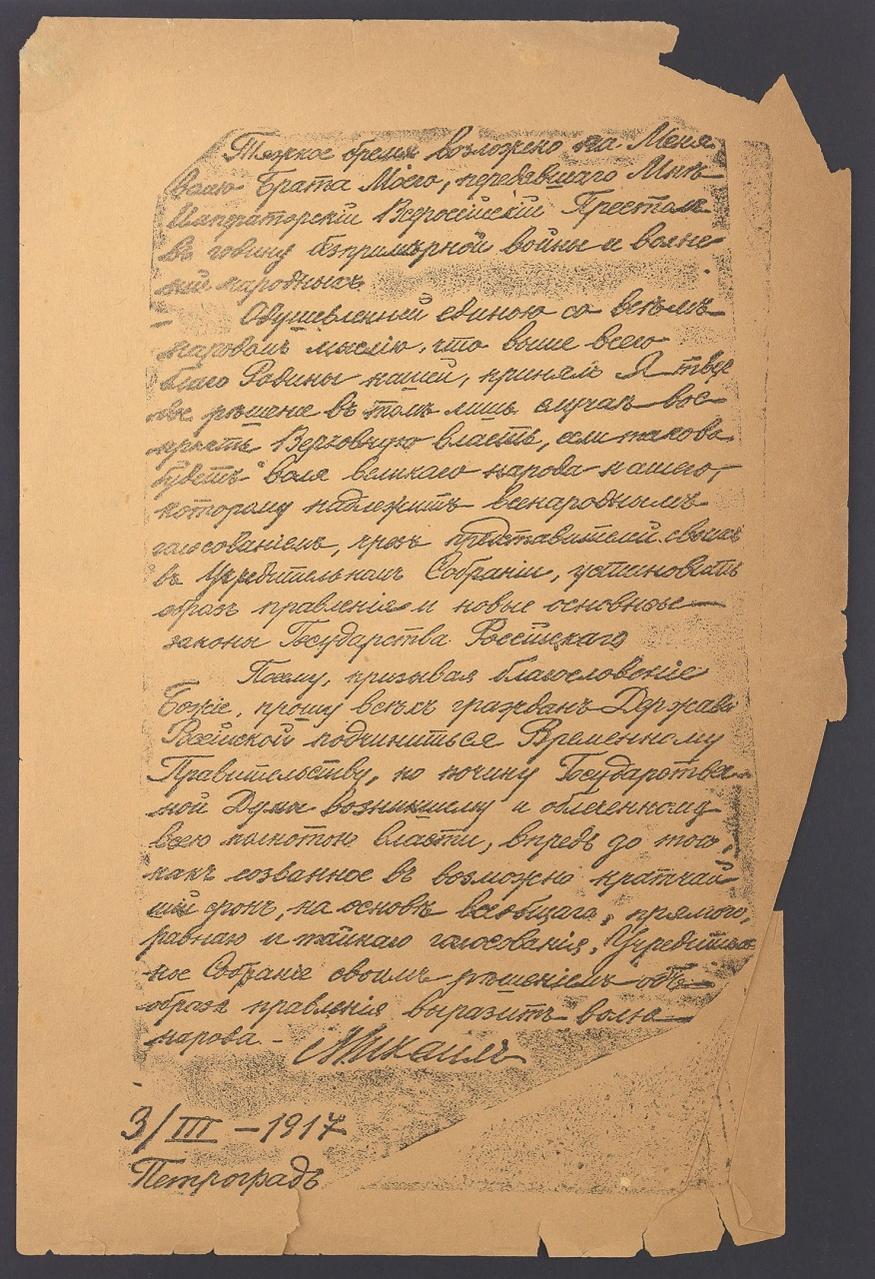 Тяжкое бремя возложено на Меня
волею Брата Моего, передавшаго Мнѣ
Императорскій Всероссійскій Престолъ
въ годину безпримѣрной войны и волне
ній народныхъ.
Одушевленный единою со всѣмъ
народомъ мыслію, что выше всего
благо Родины нашей, принялъ Я твер
дое рѣшеніе въ томъ лишь случаѣ вос
пріять Верховную власть, если такова
будетъ воля великаго народа нашего,
которому надлежитъ всенароднымъ
голосованіемъ, чрезъ представителей своихъ
въ Учредительномъ Собраніи, установить
образъ правленія и новые основные
законы Государства Россійскаго
Посему, призывая благословеніе
Божіе, прошу всѣхъ гражданъ Державы
Россійской подчиниться Временному
Правительству, по почину Государствен
ной Думы возникшему и облеченному
всею полнотою власти, впредь до того,
какъ созванное въ возможно кратчай
шій срокъ, на основѣ всеобщаго, прямого,
равнаго и тайнаго голосованія, Учредитель
ное Собраніе своимъ рѣшеніемъ объ
образѣ правленія выразитъ волю
народа. -
Михаилъ
3/III - 1917
Петроградъ